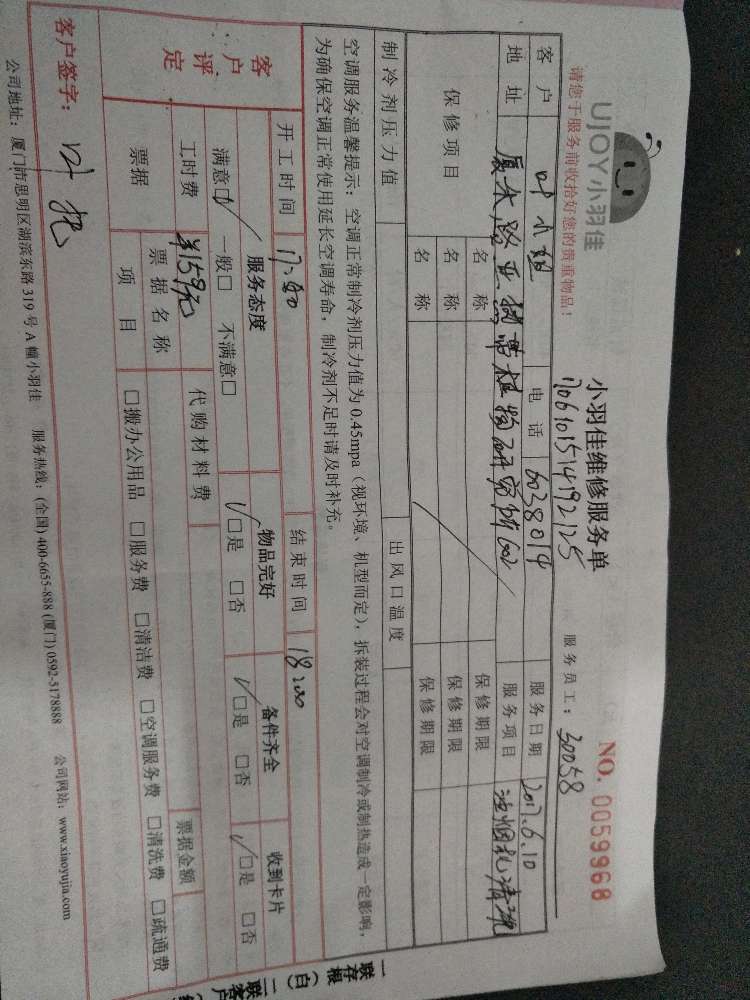 UJOY小羽佳
小羽佳维修服务单
NO. 0059968
1706101514192125
服务员工: 30058
请您于服务前收拾好您的贵重物品!
客户 叶小姐 电话 6028014 服务日期 2017.6.10
地址 厦大路亚热带植物研究所 服务项目 油烟机清洗
保修项目 名称 保修期限
名称 保修期限
名称 保修期限
制冷剂压力值 出风口温度
空调服务温馨提示: 空调正常制冷剂压力值为 0.45mpa (视环境、机型而定), 拆装过程会对空调制冷或制热造成一定影响,
为确保空调正常使用延长空调寿命, 制冷剂不足时请及时补充。
开工时间 17:00 结束时间 18:00
客户评定 服务态度 物品完好 备件齐全 收到卡片
满意□ 一般□ 不满意□ □是 □否 □是 □否 □是 □否
工时费 ¥159元 代购材料费
票据 票据名称 票据金额
项目 □搬办公用品 □服务费 □清洁费 □空调服务费 □清洗费 □疏通费
客户签字:
公司地址: 厦门市思明区湖滨东路 319 号 A 幢小羽佳 服务热线: (全国) 400-6655-888 (厦门) 0592-5178888 公司网站: www.xiaoyujia.com
一联存根(白) 二联客户